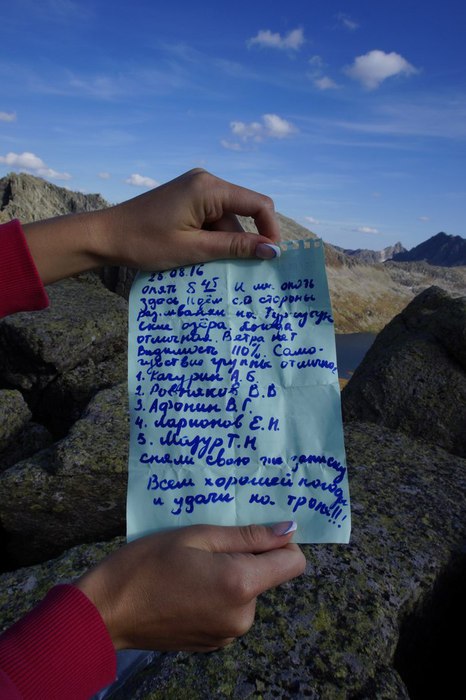 25.08.16
Опять 5 45 И мы опять
здесь. Идём с.о стороны
на
ские озёра. Погода
отличная. Ветра нет
Видимость 110%. Само-
чувствие группы отлично
1. Качурин А.Б.
2. Ровняков В.В
3. Афонин В.Г.
4. Ларионов Е.Н.
5. Мазур Т.Н
сняли свою же записку
Всем хорошей погоды
и удачи на тропе!!!